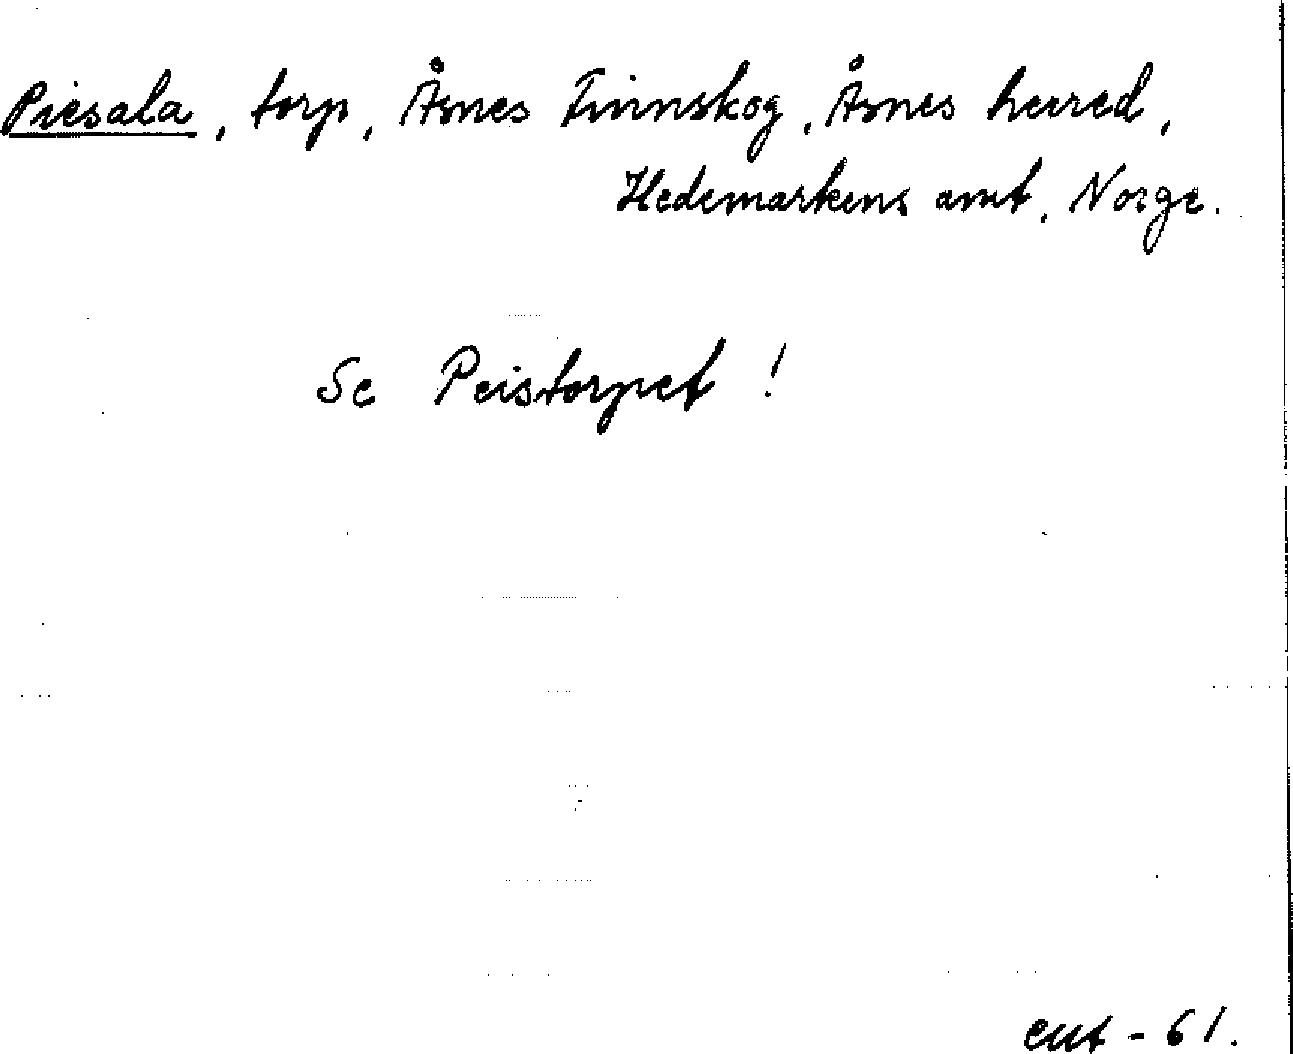 Piesala, torp, Åsnes Finnskog, Åsnes herred,
Hedemarkens amt, Norge.
Se Peistorpet !
eut - 61.